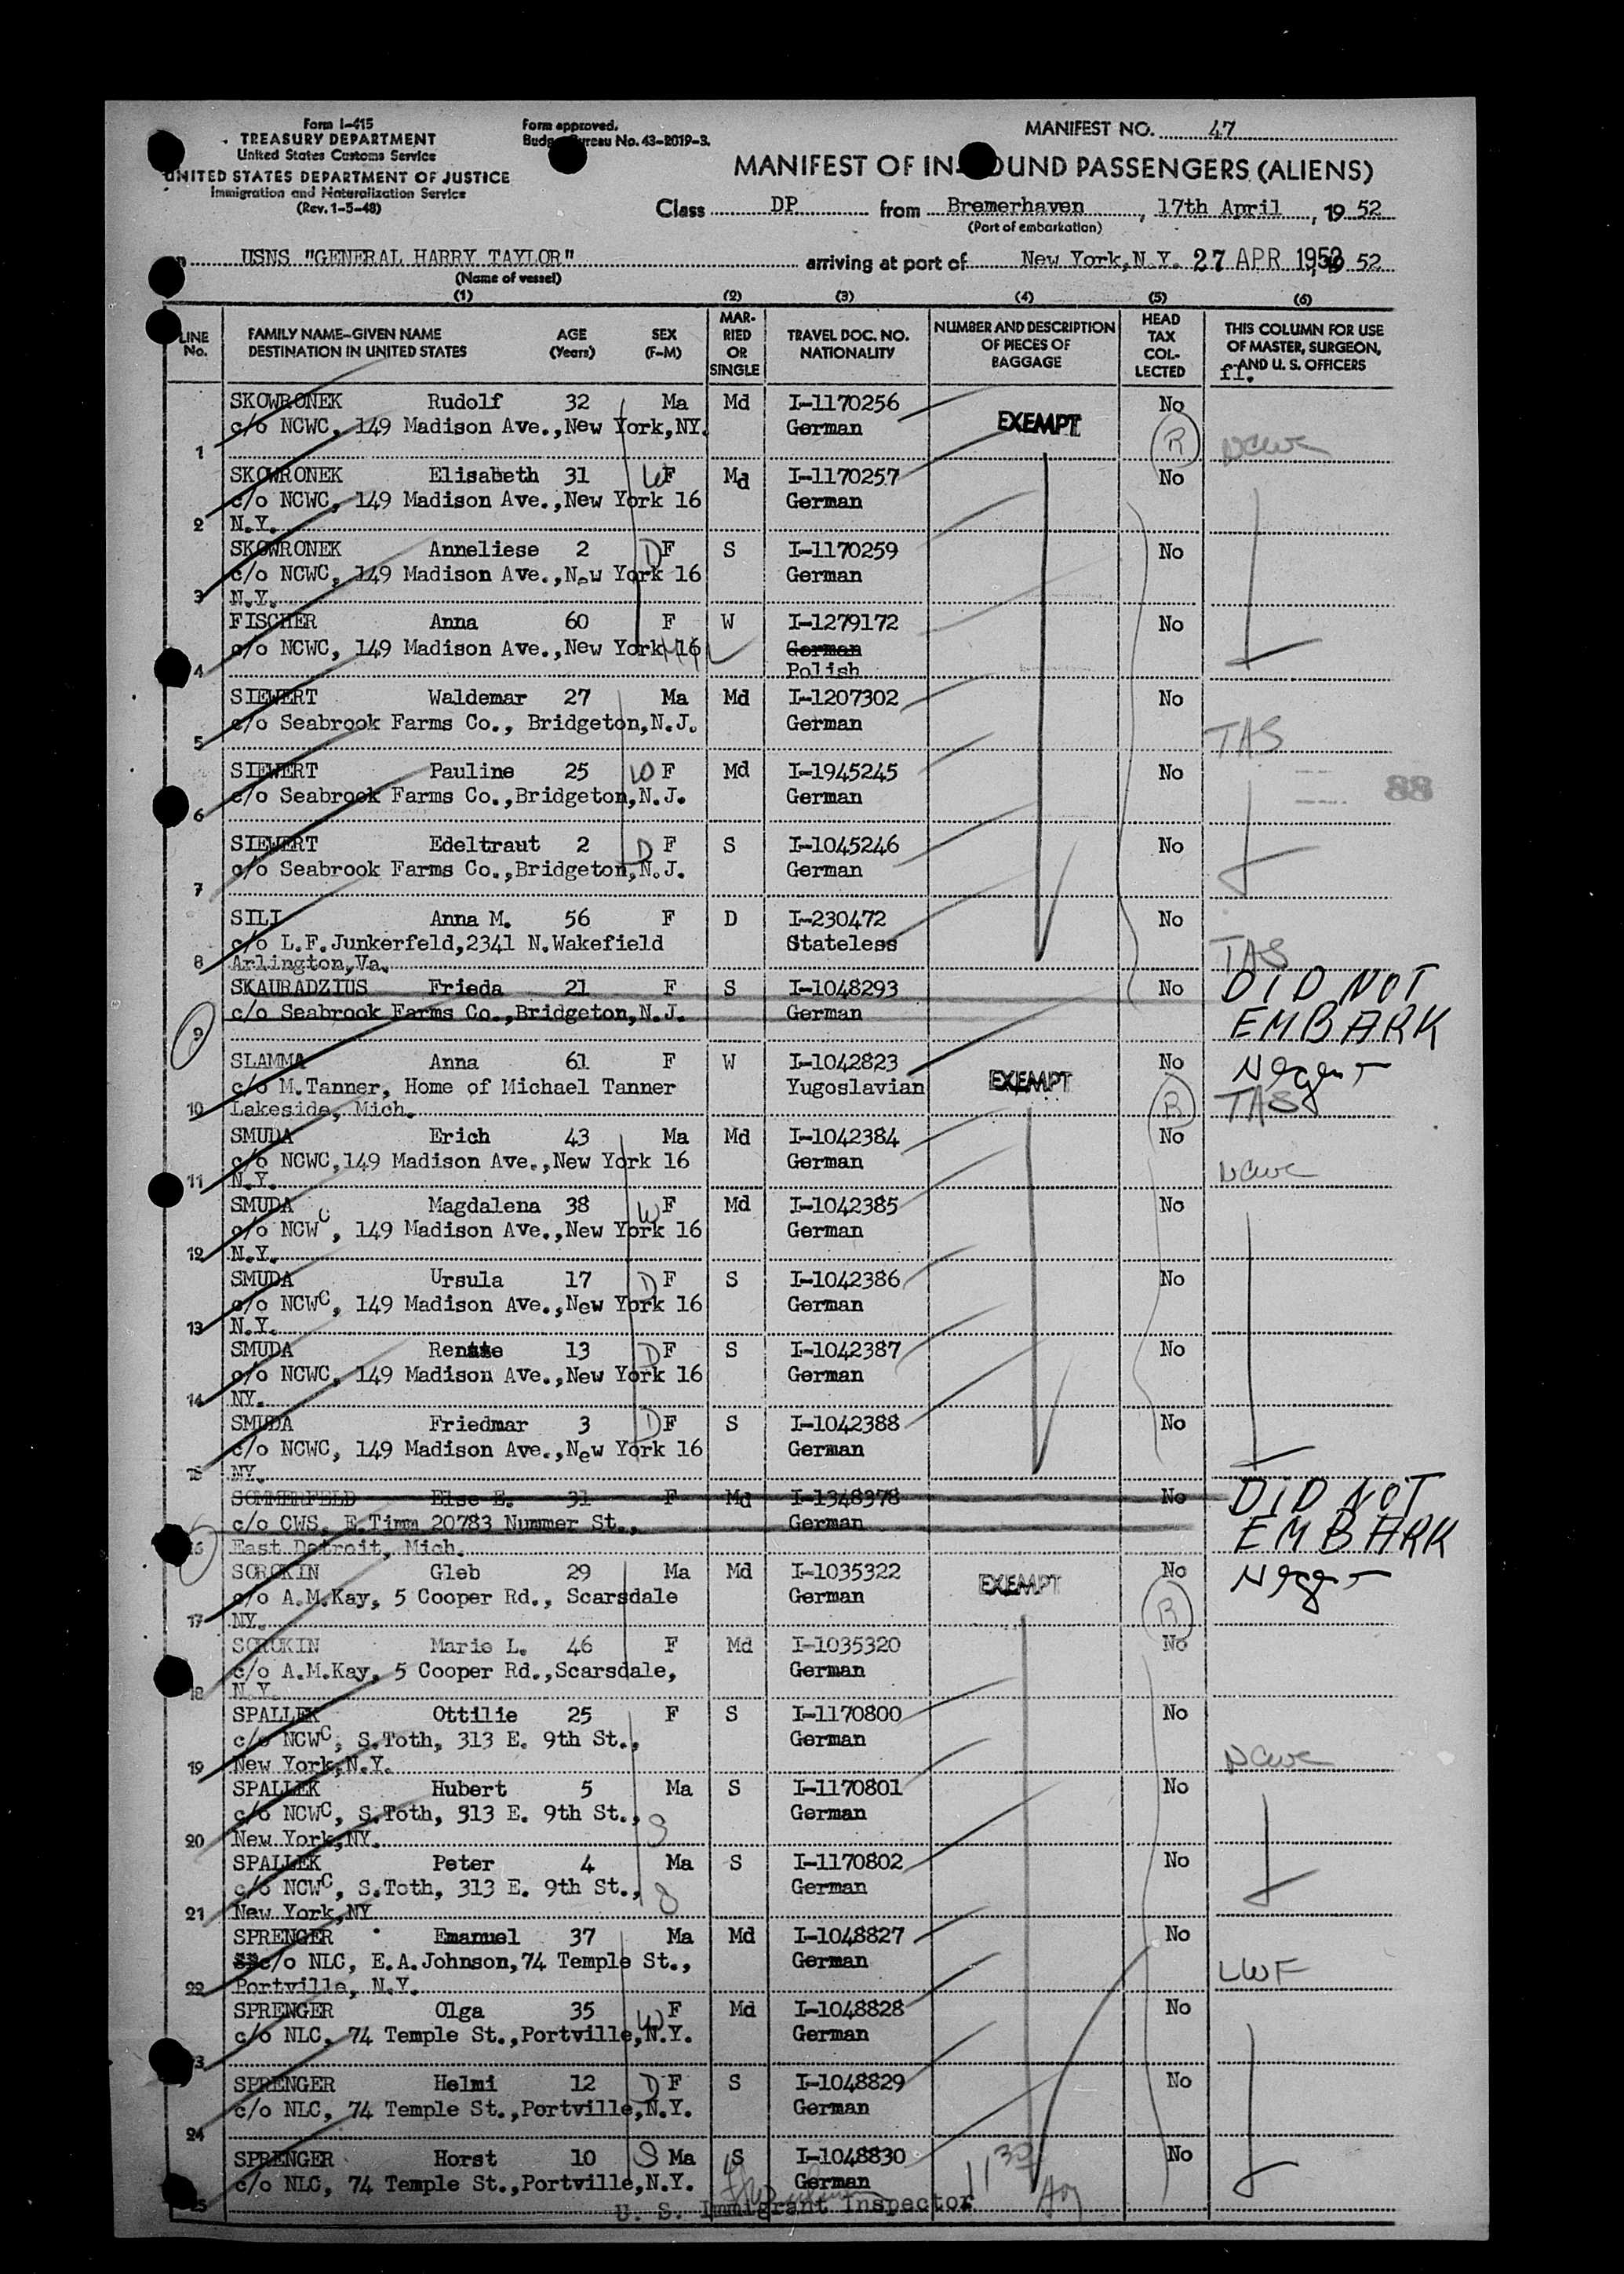 Form I-415
TREASURY DEPARTMENT
United States Customs Service
UNITED STATES DEPARTMENT OF JUSTICE
Immigration and Naturalization Service
(Rev. 1-5-48)
Form approved.
Budget Bureau No. 43-R019-3.
MANIFEST NO. 47
MANIFEST OF IN-BOUND PASSENGERS (ALIENS)
Class DP from Bremerhaven, 17th April, 19 52
(Port of embarkation)
USNS "GENERAL HARRY TAYLOR" arriving at port of New York, N.Y. 27 APR 1952 52
(Name of vessel)
(1) (2) (3) (4) (5) (6)
LINE No. FAMILY NAME-GIVEN NAME DESTINATION IN UNITED STATES AGE (Years) SEX (F-M) MAR-RIED OR SINGLE TRAVEL DOC. NO. NATIONALITY NUMBER AND DESCRIPTION OF PIECES OF BAGGAGE HEAD TAX COL-LECTED THIS COLUMN FOR USE OF MASTER, SURGEON, AND U. S. OFFICERS
SKOWRONEK Rudolf 32 Ma Md I-1170256 No
c/o NCWC, 149 Madison Ave.,New York,NY. German EXEMPT
1 R NCWC
SKOWRONEK Elisabeth 31 W F Md I-1170257 No
c/o NCWC, 149 Madison Ave.,New York 16 German
2 N.Y.
SKOWRONEK Anneliese 2 D F S I-1170259 No
c/o NCWC, 149 Madison Ave.,New York 16 German
3 N.Y.
FISCHER Anna 60 F W I-1279172 No
c/o NCWC, 149 Madison Ave.,New York 16 German
4 Polish
SIEWERT Waldemar 27 Ma Md I-1207302 No
c/o Seabrook Farms Co., Bridgeton,N.J. German
5 TAS
SIEWERT Pauline 25 W F Md I-1945245 No
c/o Seabrook Farms Co.,Bridgeton,N.J. German 88
6
SIEWERT Edeltraut 2 D F S I-1045246 No
c/o Seabrook Farms Co.,Bridgeton,N.J. German
7
SILI Anna M. 56 F D I-230472 No
c/o L.F.Junkerfeld,2341 N.Wakefield Stateless
8 Arlington,Va. TAS
SKAURADZIUS Frieda 21 F S I-1048293 No DID NOT
c/o Seabrook Farms Co.,Bridgeton,N.J. German EMBARK
9
SLAMMA Anna 61 F W I-1042823 No
c/o M.Tanner, Home of Michael Tanner Yugoslavian EXEMPT
10 Lakeside, Mich. R TAS
SMUDA Erich 43 Ma Md I-1042384 No
c/o NCWC,149 Madison Ave.,New York 16 German
11 N.Y. NCWC
SMUDA Magdalena 38 W F Md I-1042385 No
c/o NCWC, 149 Madison Ave.,New York 16 German
12 N.Y.
SMUDA Ursula 17 D F S I-1042386 No
c/o NCWC, 149 Madison Ave.,New York 16 German
13 N.Y.
SMUDA Renate 13 D F S I-1042387 No
c/o NCWC, 149 Madison Ave.,New York 16 German
14 NY.
SMUDA Friedmar 3 D F S I-1042388 No
c/o NCWC, 149 Madison Ave.,New York 16 German
15 NY.
SOMMERFELD Else E. 31 F Md I-1348378 No DID NOT
c/o CWS, E.Timm 20783 Nummer St., German EMBARK
16 East Detroit, Mich.
SOROKIN Gleb 29 Ma Md I-1035322 No
c/o A.M.Kay, 5 Cooper Rd., Scarsdale German EXEMPT
17 NY. R
SOROKIN Marie L. 46 F Md I-1035320 No
c/o A.M.Kay, 5 Cooper Rd.,Scarsdale, German
18 N.Y.
SPALLEK Ottilie 25 F S I-1170800 No
c/o NCWC, S.Toth, 313 E. 9th St., German
19 New York,N.Y. NCWC
SPALLEK Hubert 5 Ma S I-1170801 No
c/o NCWC, S.Toth, 313 E. 9th St., German
20 New York,NY. S
SPALLEK Peter 4 Ma S I-1170802 No
c/o NCWC, S.Toth, 313 E. 9th St., German
21 New York,NY S
SPRENGER Emanuel 37 Ma Md I-1048827 No
c/o NLC, E.A.Johnson,74 Temple St., German
22 Portville, N.Y. LWF
SPRENGER Olga 35 W F Md I-1048828 No
c/o NLC, 74 Temple St.,Portville,N.Y. German
23
SPRENGER Helmi 12 D F S I-1048829 No
c/o NLC, 74 Temple St.,Portville,N.Y. German
24
SPRENGER Horst 10 S Ma S I-1048830 No
c/o NLC, 74 Temple St.,Portville,N.Y. German
25 U. S. Immigrant Inspector